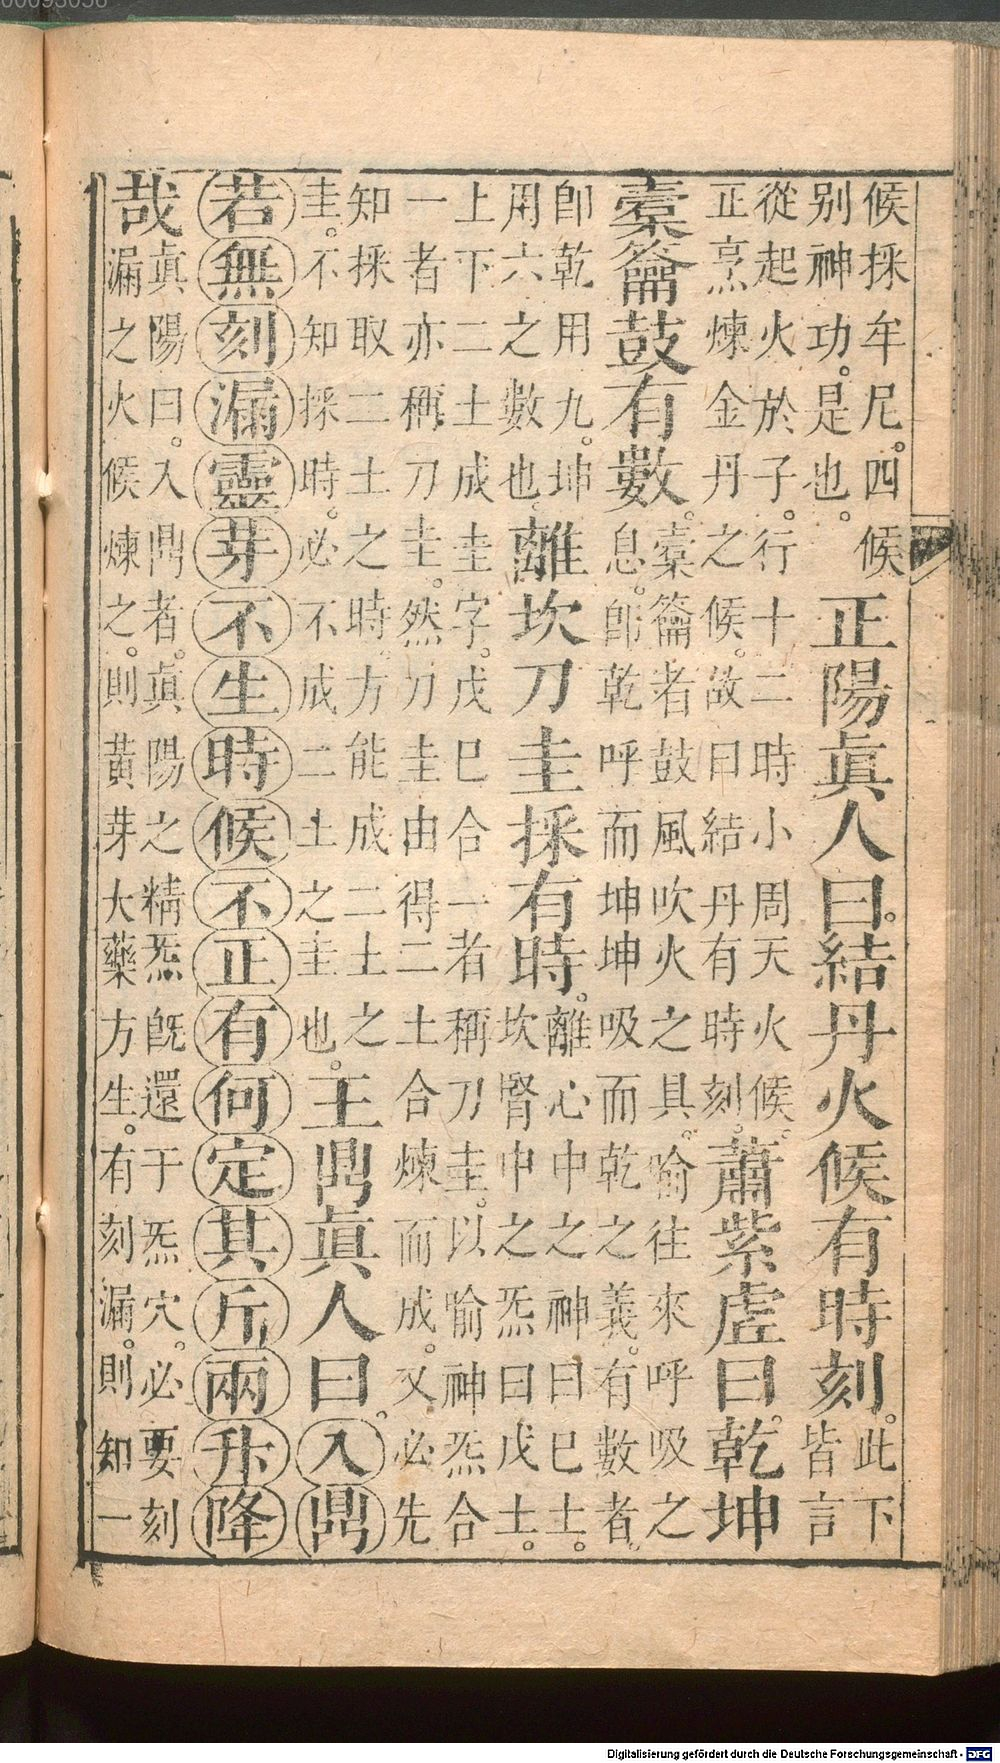 候採牟尼。四候
别神功。是也。
正陽眞人曰。結丹火候有時刻。
此下
皆言
從起火於子。行十二時小周天火候。
正烹煉金丹之候。故曰結丹有時刻。
蕭紫虛曰。乾坤
橐籥鼓有數。
橐籥者鼓風吹火之具。喻往來呼吸之
息。卽乾呼而坤坤吸而乾之義。有數者。
卽乾用九。坤
用六之數也。
離坎刀圭採有時。
離心中之神曰巳土。
坎腎中之炁曰戊土。
上下二土成圭字。戊巳合一者稱刀圭。以喻神炁合
一者亦稱刀圭。然刀圭由得二土合煉而成。又必先
知採取二土之時。方能成二土之
圭。不知採時。必不成二土之圭也。
王鼎眞人曰。入鼎
若無刻漏靈芽不生時候不正有何定其斤兩升降
哉
眞陽曰。入鼎者。眞陽之精炁旣還于炁穴。必要刻
漏之火候煉之。則黃芽大藥方生。有刻漏。則知一
Digitalisierung gefördert durch die Deutsche Forschungsgemeinschaft - DFG